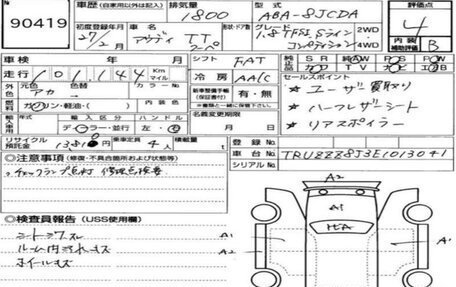 No. 90419
車歴 (自家用以外は記入)
初度登録年月 27年 2月
車名 アウディ TT クーペ
排気量 1800
型式 ABA-8JCDA
グレード 1.8TFSI Sライン コンペティション
2WD
4WD
評価点 4
内装 補助評価 B
車検 年 月
走行 101,144 Km マイル
シフト FAT
冷房 AAC
純正 SR AW PS PW
装備 カワ TV ナビ エアB
外元色 アカ
色替
燃料 ガソリン・軽油・( )
新車整備手帳(保証書付) 有・無
輸入車 ディーラー・並行
ハンドル 左・右
名義変更期限 月 日
リサイクル預託金 円
乗車定員 4人
セールスポイント
★ ユーザー買取り
★ ハーフレザーシート
★ リアスポイラー
登録No.
車台No. TRUZZZ8J3E1013041
シリアルNo.
◎注意事項 (修復・不具合箇所および状態等)
チェックランプ点灯 修理点検要
◎検査員報告 (USS使用欄)
シートシワ、スレ
ルーム内汚れキズ
ホイールキズ
A2
A1
A1
A2
A1